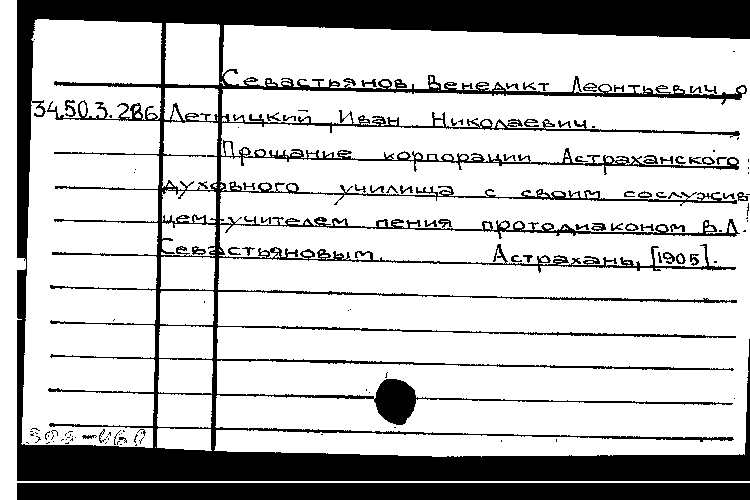 Севастьянов, Венедикт Леонтьевич, о
34.50.3.286 Летницкий, Иван Николаевич.
Прощание корпорации Астраханского
духовного училища с своим сослужив
цем-учителем пения протодиаконом В.Л.
Севастьяновым. Астрахань, [1905].